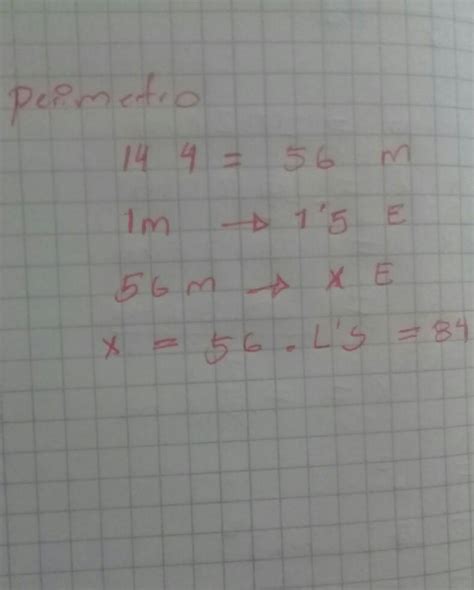 perimetro
14 4 = 56 m
1m → 1'5 E
56 m → x E
x = 56 . 1'5 = 84